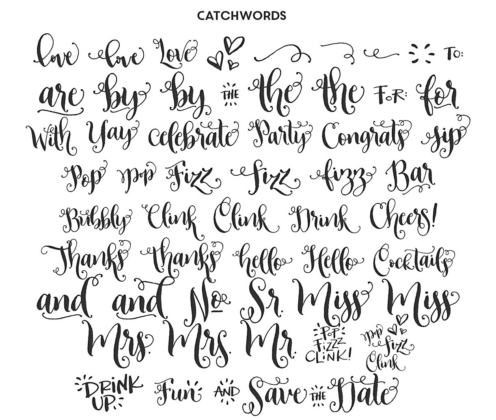 CATCHWORDS
love love Love TO:
are by by THE the the FOR: for
With Yay celebrate Party Congrats sip
Pop pop Fizz fizz fizz Bar
Bubbly Clink Clink Drink Cheers!
Thanks thanks hello Hello Cocktails
and and No. Sr. Miss Miss
Mrs. Mrs. Mr. POP FIZZ CLINK! pop fizz Clink
DRINK UP. Fun AND Save THE Date